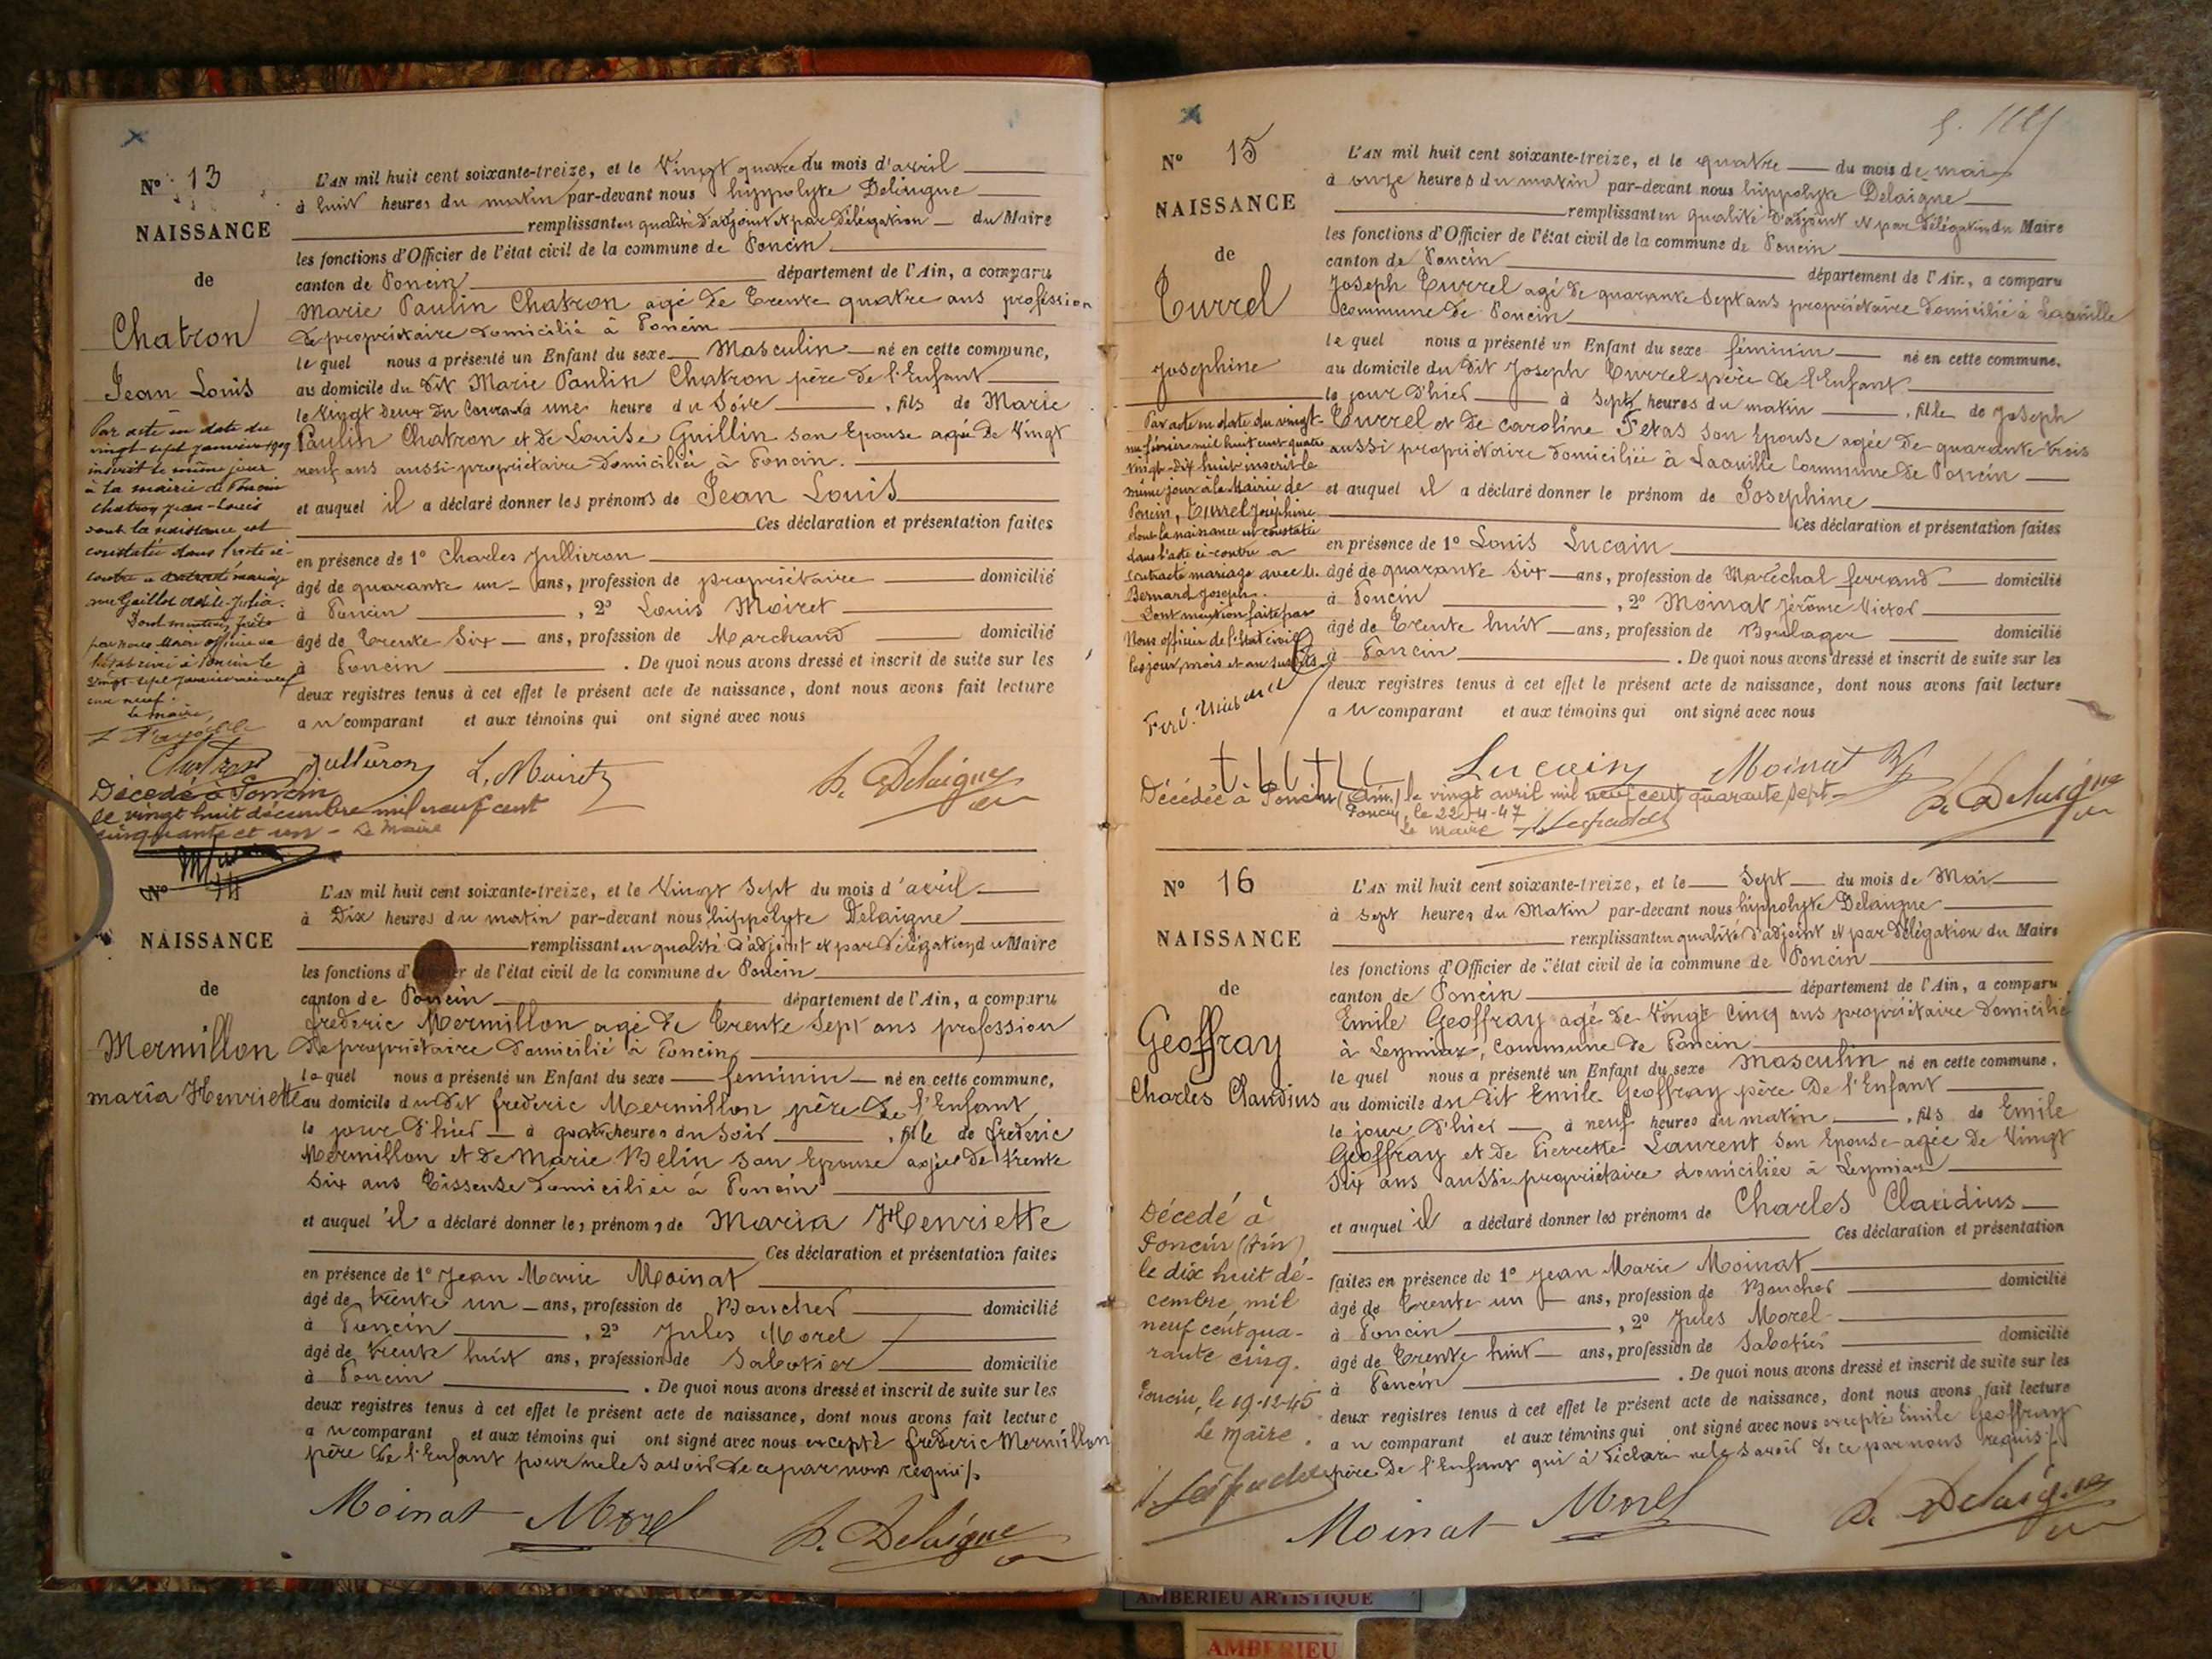 N° 13
NAISSANCE
de
Chatron
Jean Louis
Par acte en date du
vingt-sept janvier 1909
inscrit le même jour
à la mairie de Poncin
Chatron Jean-Louis
dont la naissance est
constatée dans l'acte ci-
contre a contracté mariage
avec Gaillot Adèle-Julia.
Dont mention faite
par nous Maire officier de
l'état civil à Poncin le
vingt-sept janvier mil neuf
cent neuf.
Le maire,
L'AN mil huit cent soixante-treize, et le Vingt quatre du mois d'avril
à huit heures du matin par-devant nous hippolyte Delaigue
remplissant en qualité d'adjoint et par Délégation du Maire
les fonctions d'Officier de l'état civil de la commune de Poncin
canton de Poncin département de l'Ain, a comparu
Marie Paulin Chatron agé de Trente quatre ans profession
de propriétaire domicilié à Poncin
le quel nous a présenté un Enfant du sexe Masculin né en cette commune,
au domicile du dit Marie Paulin Chatron père de l'Enfant
le Vingt deux du Courant à une heure du Soir , fils de Marie
Paulin Chatron et de Louise Guillin son Epouse agée de Vingt
neuf ans aussi propriétaire domiciliée à Poncin.
et auquel il a déclaré donner les prénoms de Jean Louis
Ces déclaration et présentation faites
en présence de 1° Charles Jullieron
âgé de quarante un ans, profession de propriétaire domicilié
à Poncin , 2° Louis Moiret
âgé de Trente Six ans, profession de Marchand domicilié
à Poncin . De quoi nous avons dressé et inscrit de suite sur les
deux registres tenus à cet effet le présent acte de naissance, dont nous avons fait lecture
au comparant et aux témoins qui ont signé avec nous
Chatron Jullieron L. Moiret h. Delaigue
Décédé à Poncin
le vingt huit décembre mil neuf cent
cinquante et un - Le Maire
N° 14
NAISSANCE
de
Mermillon
maria Henriette
L'AN mil huit cent soixante-treize, et le Vingt Sept du mois d'avril
à Dix heures du matin par-devant nous hippolyte Delaigue
remplissant en qualité d'adjoint et par Délégation du Maire
les fonctions d'Officier de l'état civil de la commune de Poncin
canton de Poncin département de l'Ain, a comparu
frederic Mermillon agé de Trente Sept ans profession
de propriétaire domicilié à Poncin
le quel nous a présenté un Enfant du sexe feminin né en cette commune,
au domicile du dit frederic Mermillon père de l'Enfant
le jour d'hier à quatre heures du Soir , fille de frederic
Mermillon et de Marie Belin son Epouse agée de trente
Six ans Tisseuse domiciliée à Poncin
et auquel il a déclaré donner les prénoms de Maria Henriette
Ces déclaration et présentation faites
en présence de 1° Jean Marie Moinat
âgé de trente un ans, profession de Boucher domicilié
à Poncin , 2° Jules Morel
âgé de trente huit ans, profession de Sabotier domicilié
à Poncin . De quoi nous avons dressé et inscrit de suite sur les
deux registres tenus à cet effet le présent acte de naissance, dont nous avons fait lecture
au comparant et aux témoins qui ont signé avec nous excepté frederic Mermillon
père de l'Enfant pour ne le Savoir de ce par nous requis
Moinat Morel h. Delaigue
N° 15
NAISSANCE
de
Turrel
Josephine
Par acte en date du vingt-
un février mil huit cent quatre
vingt-dix huit inscrit le
même jour à la Mairie de
Poncin, Turrel Joséphine
dont la naissance est constatée
dans l'acte ci-contre a
contracté mariage avec
Bernard Joseph.
Dont mention faite par
Nous officier de l'Etat civil
les jour, mois et an susdits
L'AN mil huit cent soixante-treize, et le quatre du mois de mai
à onze heures du matin par-devant nous hippolyte Delaigue
remplissant en qualité d'adjoint et par Délégation du Maire
les fonctions d'Officier de l'état civil de la commune de Poncin
canton de Poncin département de l'Ain, a comparu
Joseph Turrel agé de quarante Sept ans propriétaire domicilié à
commune de Poncin
le quel nous a présenté un Enfant du sexe féminin né en cette commune.
au domicile du dit Joseph Turrel père de l'Enfant
le jour d'hier à Sept heures du matin , fille de Joseph
Turrel et de caroline son Epouse agée de quarante trois
aussi propriétaire domiciliée à Commune de Poncin
et auquel il a déclaré donner le prénom de Josephine
Ces déclaration et présentation faites
en présence de 1° Louis Lucain
âgé de quarante Six ans, profession de Maréchal ferrand domicilié
à Poncin , 2° Moinat Jérôme Victor
âgé de Trente huit ans, profession de Boulager domicilié
à Poncin . De quoi nous avons dressé et inscrit de suite sur les
deux registres tenus à cet effet le présent acte de naissance, dont nous avons fait lecture
au comparant et aux témoins qui ont signé avec nous
Lucain Moinat h. Delaigue
Décédée à Poncin (Ain) le vingt avril mil neuf cent quarante sept
Poncin, le 22-4-47
Le Maire
N° 16
NAISSANCE
de
Geoffray
Charles Claudius
Décedé à
Poncin (Ain)
le dix huit dé-
cembre mil
neuf cent qua-
rante cinq.
Poncin, le 19-12-45
Le Maire.
L'AN mil huit cent soixante-treize, et le Sept du mois de Mai
à Sept heures du Matin par-devant nous hippolyte Delaigue
remplissant en qualité d'adjoint et par Délégation du Maire
les fonctions d'Officier de l'état civil de la commune de Poncin
canton de Poncin département de l'Ain, a comparu
Emile Geoffray agé de Vingt Cinq ans propriétaire domicilié
à Leymiat, Commune de Poncin
le quel nous a présenté un Enfant du sexe masculin né en cette commune,
au domicile du dit Emile Geoffray père de l'Enfant
le jour d'hier à neuf heures du matin , fils de Emile
Geoffray et de Pierrette Laurent son Epouse agée de Vingt
Six ans aussi propriétaire domiciliée à Leymiat
et auquel il a déclaré donner les prénoms de Charles Claudius
Ces déclaration et présentation
faites en présence de 1° Jean Marie Moinat
âgé de Trente un ans, profession de Boucher domicilié
à Poncin , 2° Jules Morel
âgé de Trente huit ans, profession de Sabotier domicilié
à Poncin . De quoi nous avons dressé et inscrit de suite sur les
deux registres tenus à cet effet le présent acte de naissance, dont nous avons fait lecture
au comparant et aux témoins qui ont signé avec nous excepté Emile Geoffray
père de l'Enfant qui à déclaré ne le Savoir de ce par nous requis
Moinat Morel h. Delaigue
AMBERIEU ARTISTIQUE
AMBERIEU